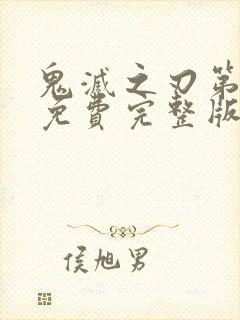 鬼滅之刃第
免費完整版
侯旭男